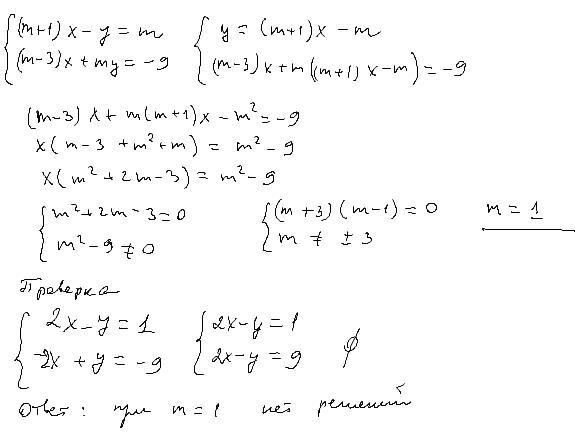 {(m+1)x-y=m {y=(m+1)x-m
{(m-3)x+my=-9 {(m-3)x+m((m+1)x-m)=-9
(m-3)x+m(m+1)x-m²=-9
x(m-3+m²+m)=m²-9
x(m²+2m-3)=m²-9
{m²+2m-3=0 {(m+3)(m-1)=0 m=1
{m²-9≠0 {m≠±3
Проверка
{2x-y=1 {2x-y=1
{-2x+y=-9 {2x-y=9 ∅
Ответ: при m=1 нет решений